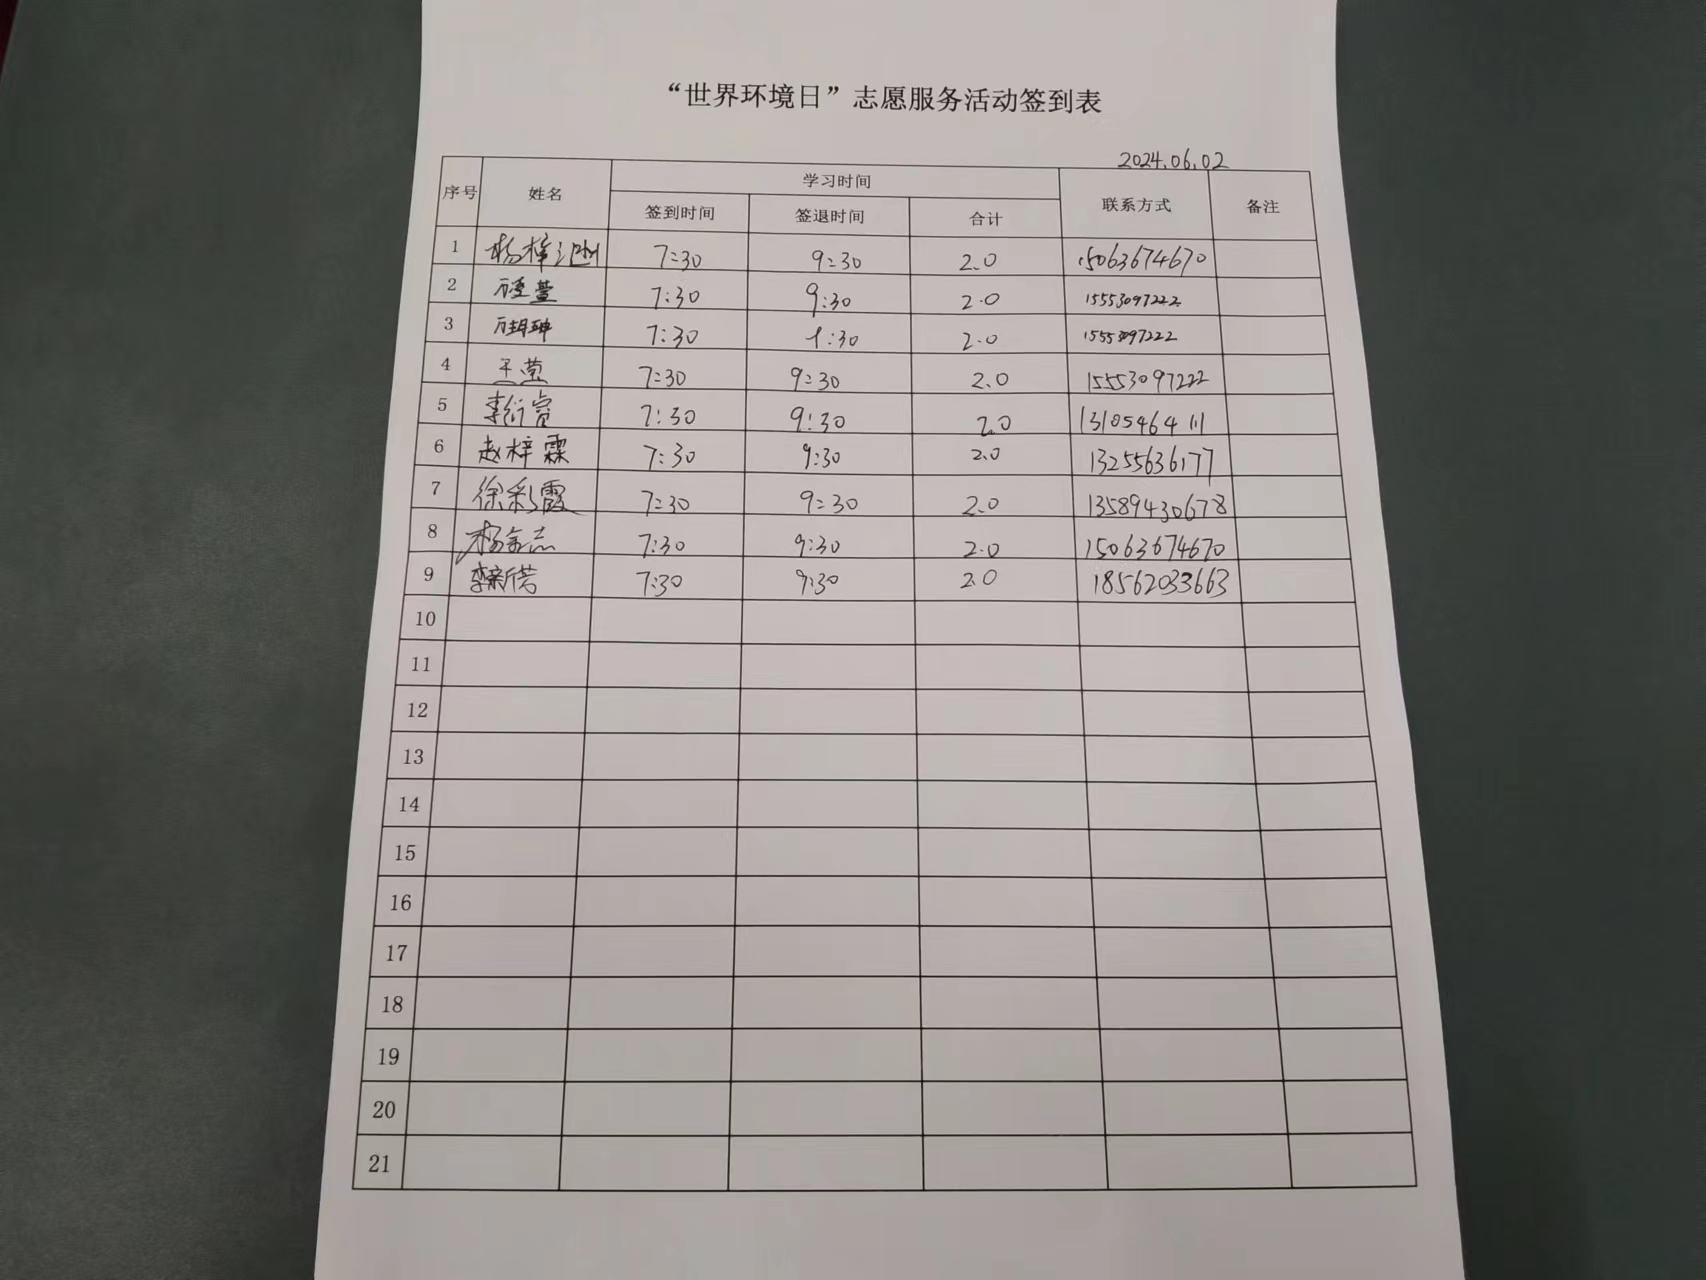 “世界环境日”志愿服务活动签到表
2024.06.02
序号 姓名 学习时间 联系方式 备注
签到时间 签退时间 合计
1 杨梓 7:30 9:30 2.0 15063674670
2 7:30 9:30 2.0 15553097222
3 7:30 :30 2.0 15553097222
4 王莹 7:30 9:30 2.0 15553097222
5 李衍睿 7:30 9:30 2.0 13105464111
6 赵梓霖 7:30 9:30 2.0 13255636177
7 徐彩霞 7:30 9:30 2.0 13589430678
8 杨志 7:30 9:30 2.0 15063674670
9 李新偌 7:30 9:30 2.0 18562033663
10
11
12
13
14
15
16
17
18
19
20
21